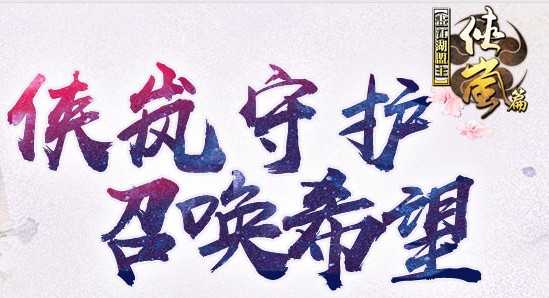 侠岚守护
召唤希望
【画江湖盟主】
侠岚篇